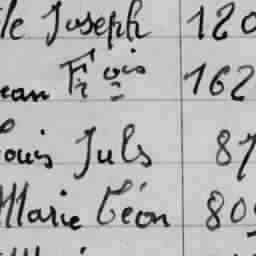 le Joseph 120
ean Fçois 162
ouis Juls 87
Marie Léon 80